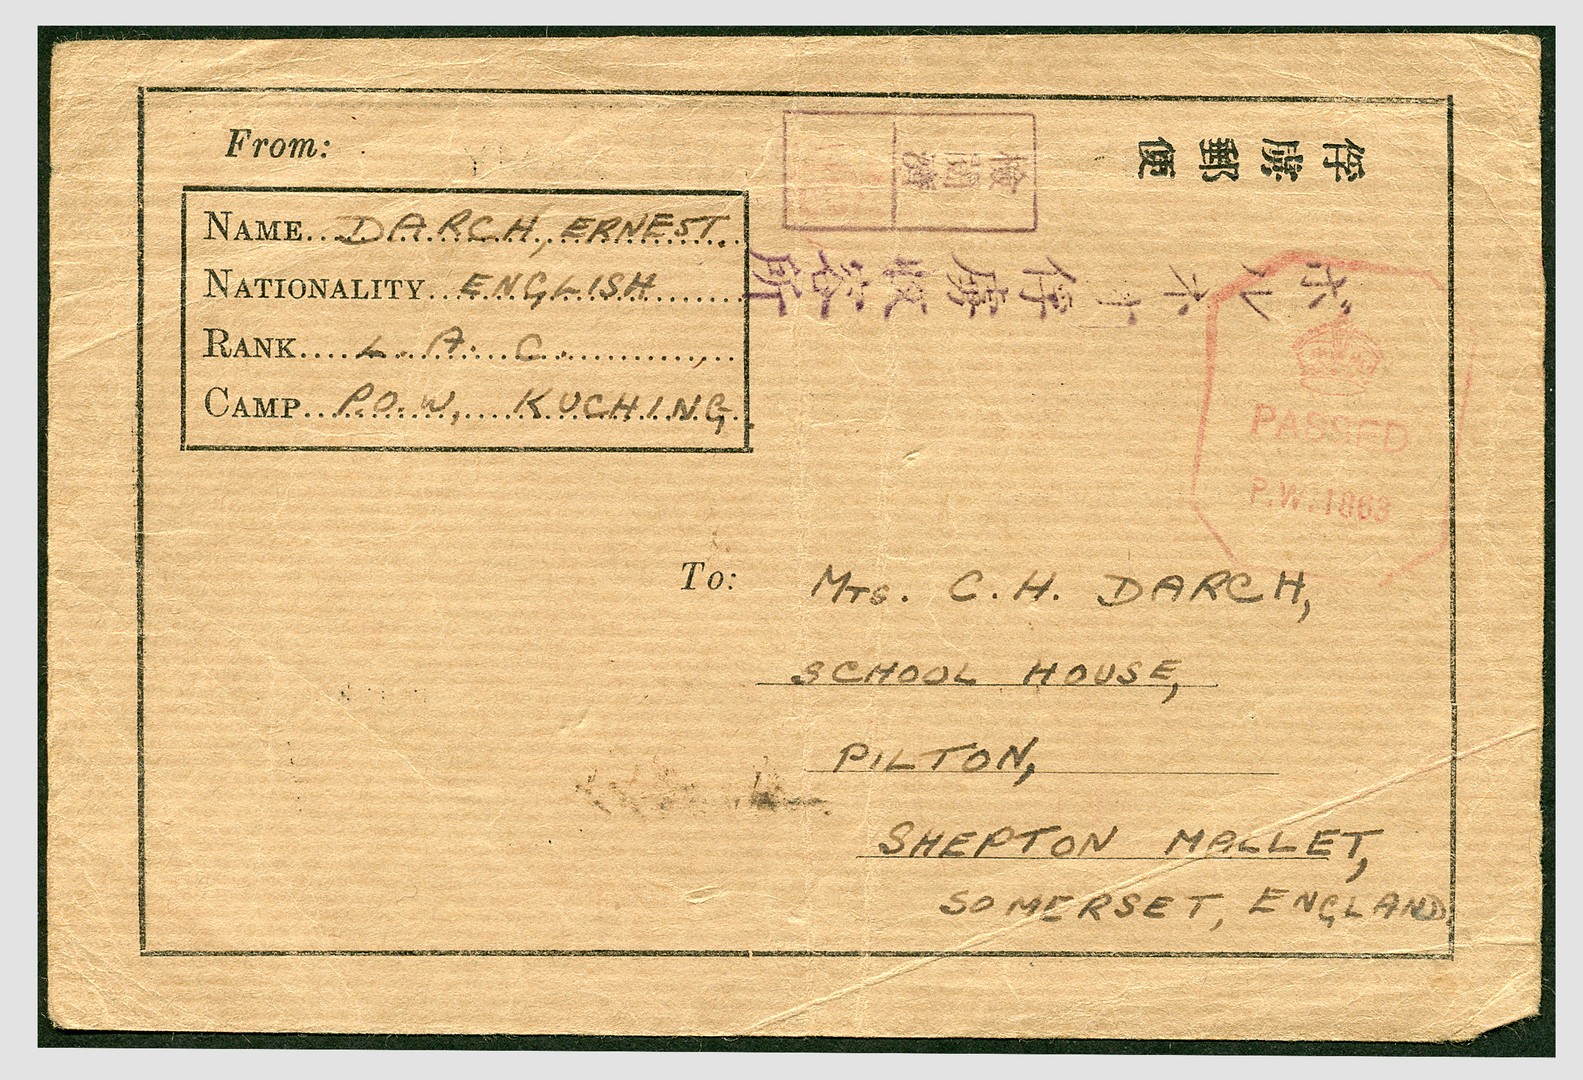 From:
俘虜郵便
檢閲濟
NAME DARCH, ERNEST.
NATIONALITY ENGLISH
RANK L. A. C.
CAMP P.O.W, KUCHING.
ボルネオ俘虜收容所
PASSED
P.W. 1863
To: Mrs. C. H. DARCH,
SCHOOL HOUSE,
PILTON,
SHEPTON MALLET,
SOMERSET, ENGLAND.